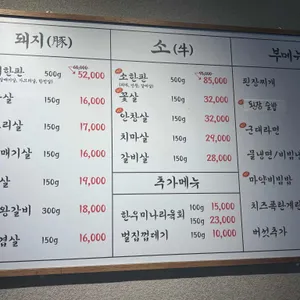 돼지(豚)
한판 500g 52,000
살 150g 16,000
리살 150g 17,000
매기살 150g 16,000
살 150g 19,000
왕갈비 300g 18,000
겹살 150g 16,000
소(牛)
소한판 500g 85,000
꽃살 150g 32,000
안창살 150g 32,000
치마살 150g 29,000
갈비살 150g 28,000
추가메뉴
한우미나리육회 100g 15,000
150g 23,000
벌집껍데기 150g 10,000
부메
된장찌개
된장술밥
군대라면
물냉면/비빔냉
마약비빔밥
치즈폭탄계란
버섯추가